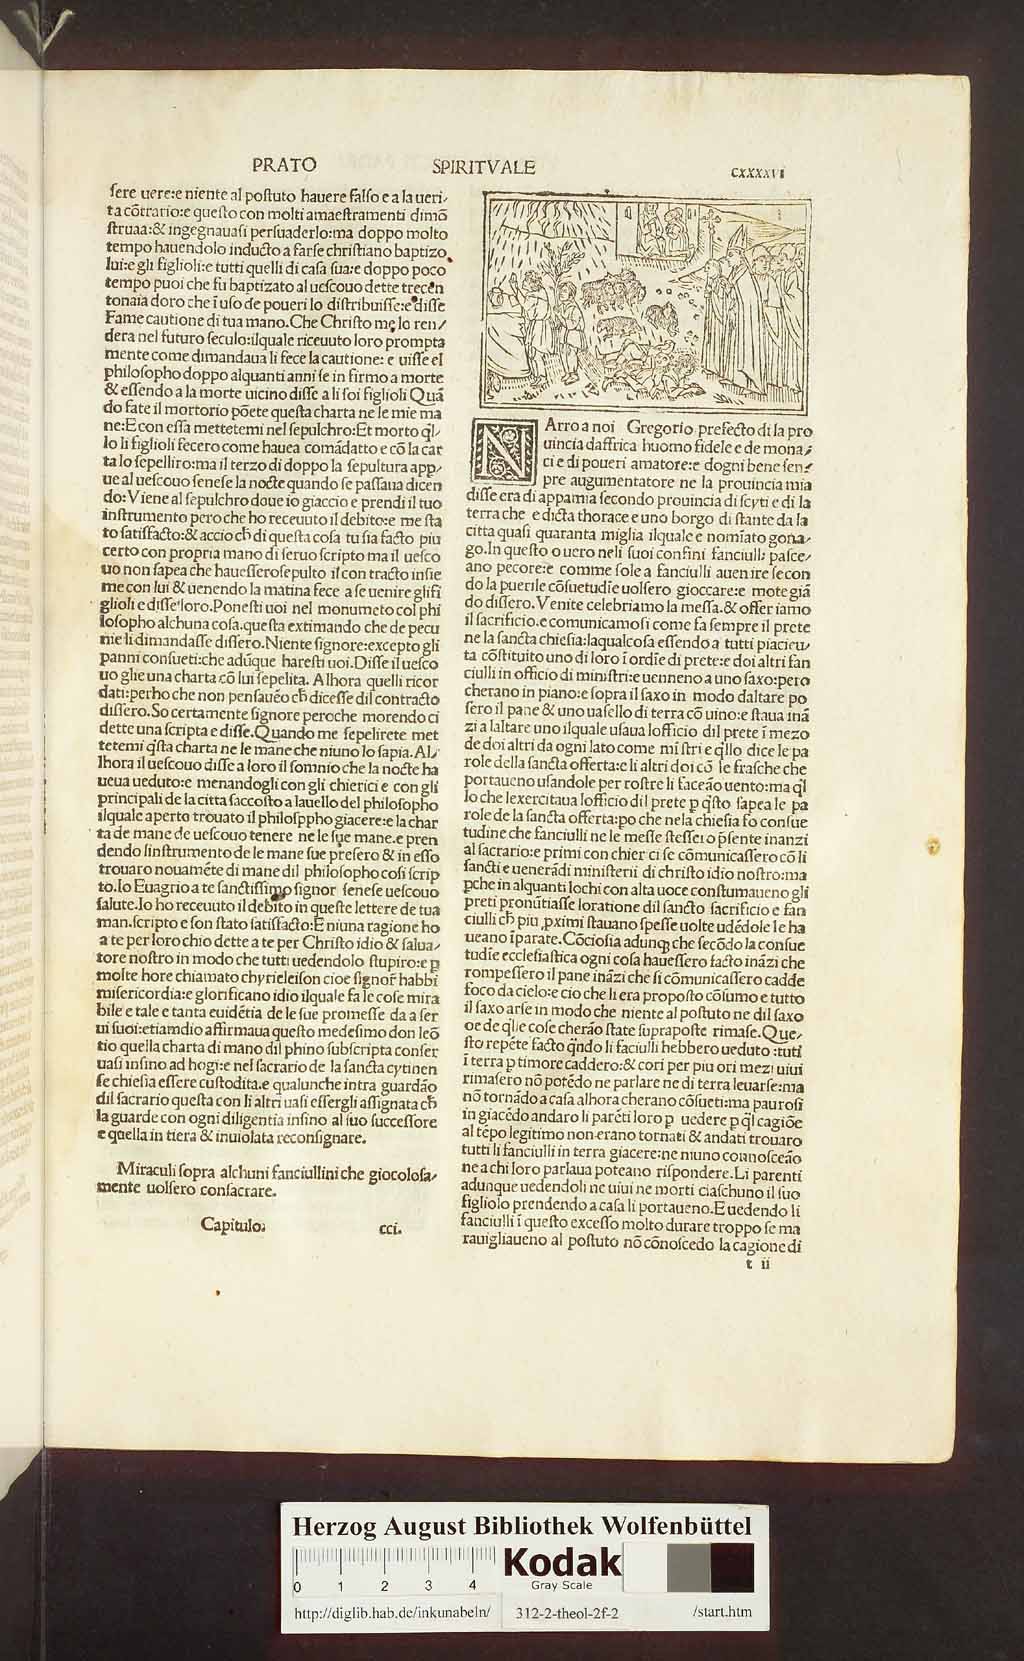 PRATO SPIRITVALE CXXXXVI
ſere uere:e niente al poſtuto hauere falſo e a la ueri-
ta cõtrario:e queſto con molti amaeſtramenti dimõ
ſtruaa:& ingegnauaſi perſuaderlo:ma doppo molto
tempo hauendolo inducto a farſe chriſtiano baptizo
lui:e gli figlioli:e tutti quelli di caſa ſua:e doppo poco
tempo puoi che fu baptizato al ueſcouo dette trecen
tonaia doro che ĩ uſo de poueri lo diſtribuiſſe:e diſſe
Fame cautione di tua mano.Che Chriſto me lo ren/
dera nel futuro ſeculo:ilquale riceuuto loro prompta
mente come dimandaua li fece la cautione: e uiſſe el
philoſopho doppo alquanti anni ſe in firmo a morte
& eſſendo a la morte uicino diſſe a li ſoi figlioli Quã
do fate il mortorio põete queſta charta ne le mie ma
ne:E con eſſa mettetemi nel ſepulchro:Et morto ql/
lo li figlioli fecero come hauea comãdatto e cõ la car
ta lo ſepelliro:ma il terzo di doppo la ſepultura app/
ue al ueſcouo ſeneſe la nocte quando ſe paſſaua dicen
do:Viene al ſepulchro doue io giaccio e prendi il tuo
inſtrumento pero che ho receuuto il debito:e me ſta
to ſatiſfacto:& accio ch̃ di queſta coſa tu ſia facto piu
certo con propria mano di ſeruo ſcripto ma il ueſco
uo non ſapea che haueſſero ſepulto il con tracto inſie
me con lui & uenendo la matina fece a ſe uenire gli fi
glioli e diſſe loro.Poneſti uoi nel monumeto col phi
loſopho alchuna coſa.queſta extimando che de pecu
nie li dimandaſſe diſſero.Niente ſignore:excepto gli
panni conſueti:che adũque hareſti uoi.Diſſe il ueſco
uo glie una charta cõ lui ſepelita. Alhora quelli ricor
dati:perho che non penſauẽo ch̃ diceſſe dil contracto
diſſero.So certamente ſignore peroche morendo ci
dette una ſcripta e diſſe.Quando me ſepelirete met
tetemi qſta charta ne le mane che niuno lo ſapia.AL
lhora il ueſcouo diſſe a loro il ſomnio che la nocte ha
ueua ueduto:e menandogli con gli chierici e con gli
principali de la citta ſaccoſto a lauello del philoſopho
ilquale aperto trouato il philoſopho giacere:e la char
ta de mane de ueſcouo tenere ne le ſue mane.e pren
dendo linſtrumento de le mane ſue preſero & in eſſo
trouaro nouamẽte di mane dil philoſopho coſi ſcrip
to.Io Euagrio a te ſanctiſſimo ſignor ſeneſe ueſcouo
ſalute.Io ho receuuto il debito in queſte lettere de tua
man.ſcripto e ſon ſtato ſatiſfacto:E niuna ragione ho
a te per loro chio dette a te per Chriſto idio & ſalua/
tore noſtro in modo che tutti uedendolo ſtupiro:e p
molte hore chiamato chyrieleiſon cioe ſignor habbi
miſericordia:e glorificano idio ilquale fa le coſe mira
bile e tale e tanta euidẽtia de le ſue promeſſe da a ſer
ui ſuoi:etiamdio affirmaua queſto medeſimo don leõ
tio quella charta di mano dil phino ſubſcripta conſer
uaſi inſino ad hogi:e nel ſacrario de la ſancta cytinen
ſe chieſia eſſere cuſtodita.e qualunche intra guardão
dil ſacrario queſta con li altri uaſi eſſergli aſſignata ch̃
la guarde con ogni diligentia inſino al ſuo ſucceſſore
e quella in tiera & inuiolata reconſignare.
Miraculi ſopra alchuni fanciullini che giocoloſa/
mente uolſero conſacrare.
Capitulo. cci.
NArro a noi Gregorio prefecto di la pro
uincia daffrica huomo fidele e de mona/
ci e di poueri amatore:e dogni bene ſen/
pre augumentatore ne la prouincia mia
diſſe era di appamia ſecondo prouincia di ſcyti e di la
terra che e dicta thorace e uno borgo di ſtante da la
citta quaſi quaranta miglia ilquale e nomĩato gona/
go.In queſto o uero neli ſuoi confini fanciulli paſce/
ano pecore:e comme ſole a fanciulli auenire ſecon
do la puerile cõſuetudĩe uolſero gioccare:e mote giã
do diſſero.Venite celebriamo la meſſa.& offer iamo
il ſacrificio.e comunicamoſi come fa ſempre il prete
ne la ſancta chieſia:laqualcoſa eſſendo a tutti piaciu/
ta cõſtituito uno di loro ĩ ordĩe di prete:e doi altri fan
ciulli in officio di miniſtri:e uenneno a uno ſaxo:pero
cherano in piano:e ſopra il ſaxo in modo daltare po
ſero il pane & uno uaſello di terra cõ uino:e ſtaua inã
zi a laltare uno ilquale uſaua lofficio dil prete ĩ mezo
de doi altri da ogni lato come mĩſtri e qllo dice le pa
role della ſancta offerta:e li altri doi cõ le fraſche che
portaueno uſandole per roſtre li faceão uento:ma ql
lo che lexercitaua lofficio dil prete p qſto ſapea le pa
role de la ſancta offerta:po che nela chieſia fo conſue
tudine che fanciulli ne le meſſe ſteſſei o pſente inanzi
al ſacrario:e primi con chier ci ſe cõmunicaſſero cõ li
ſancti e uenerãdi miniſterii di chriſto idio noſtro:ma
pche in alquanti lochi con alta uoce conſtumaueno gli
preti pronũtiaſſe loratione dil ſancto ſacrificio e fan
ciulli ch̃ piu pximi ſtauano ſpeſſe uolte udẽdole le ha
ueano ĩparate.Cõcioſia adunq; che ſecõdo la conſue
tudĩe eccleſiaſtica ogni coſa haueſſero facto inãzi che
rompeſſero il pane inãzi che ſi cõmunicaſſero cadde
foco da cielo:e cio che li era propoſto cõſumo e tutto
il ſaxo arſe in modo che niente al poſtuto ne dil ſaxo
oe de qlle coſe cherão ſtate ſupra poſte rimaſe.Que/
ſto repẽte facto qndo li faciulli hebbero ueduto :tuti
ĩ terra p timore caddero:& coſi per piu ori mezi uiui
rimaſero nõ potẽdo ne parlare ne di terra leuarſe:ma
nõ tornãdo a caſa alhora cherano cõſueti:ma pauroſi
in giacẽdo andaro li parẽti loro p uedere p ql cagiõe
al tẽpo legitimo non erano tornati & andati trouaro
tutti li fanciulli in terra giacere:ne niuno connoſceão
ne a chi loro parlaua poteano riſpondere.Li parenti
adunque uedendoli ne uiui ne morti ciaſchuno il ſuo
figliolo prendendo a caſa li portaueno.E uedendo li
fanciulli ĩ queſto exceſſo molto durare troppo ſe ma
rauigliaueno al poſtuto nõ cõnoſcedo la cagione di
t ii
Herzog August Bibliothek Wolfenbüttel
0 1 2 3 4
Kodak
Gray Scale
http://diglib.hab.de/inkunabeln/ 312-2-theol-2f-2 /start.htm